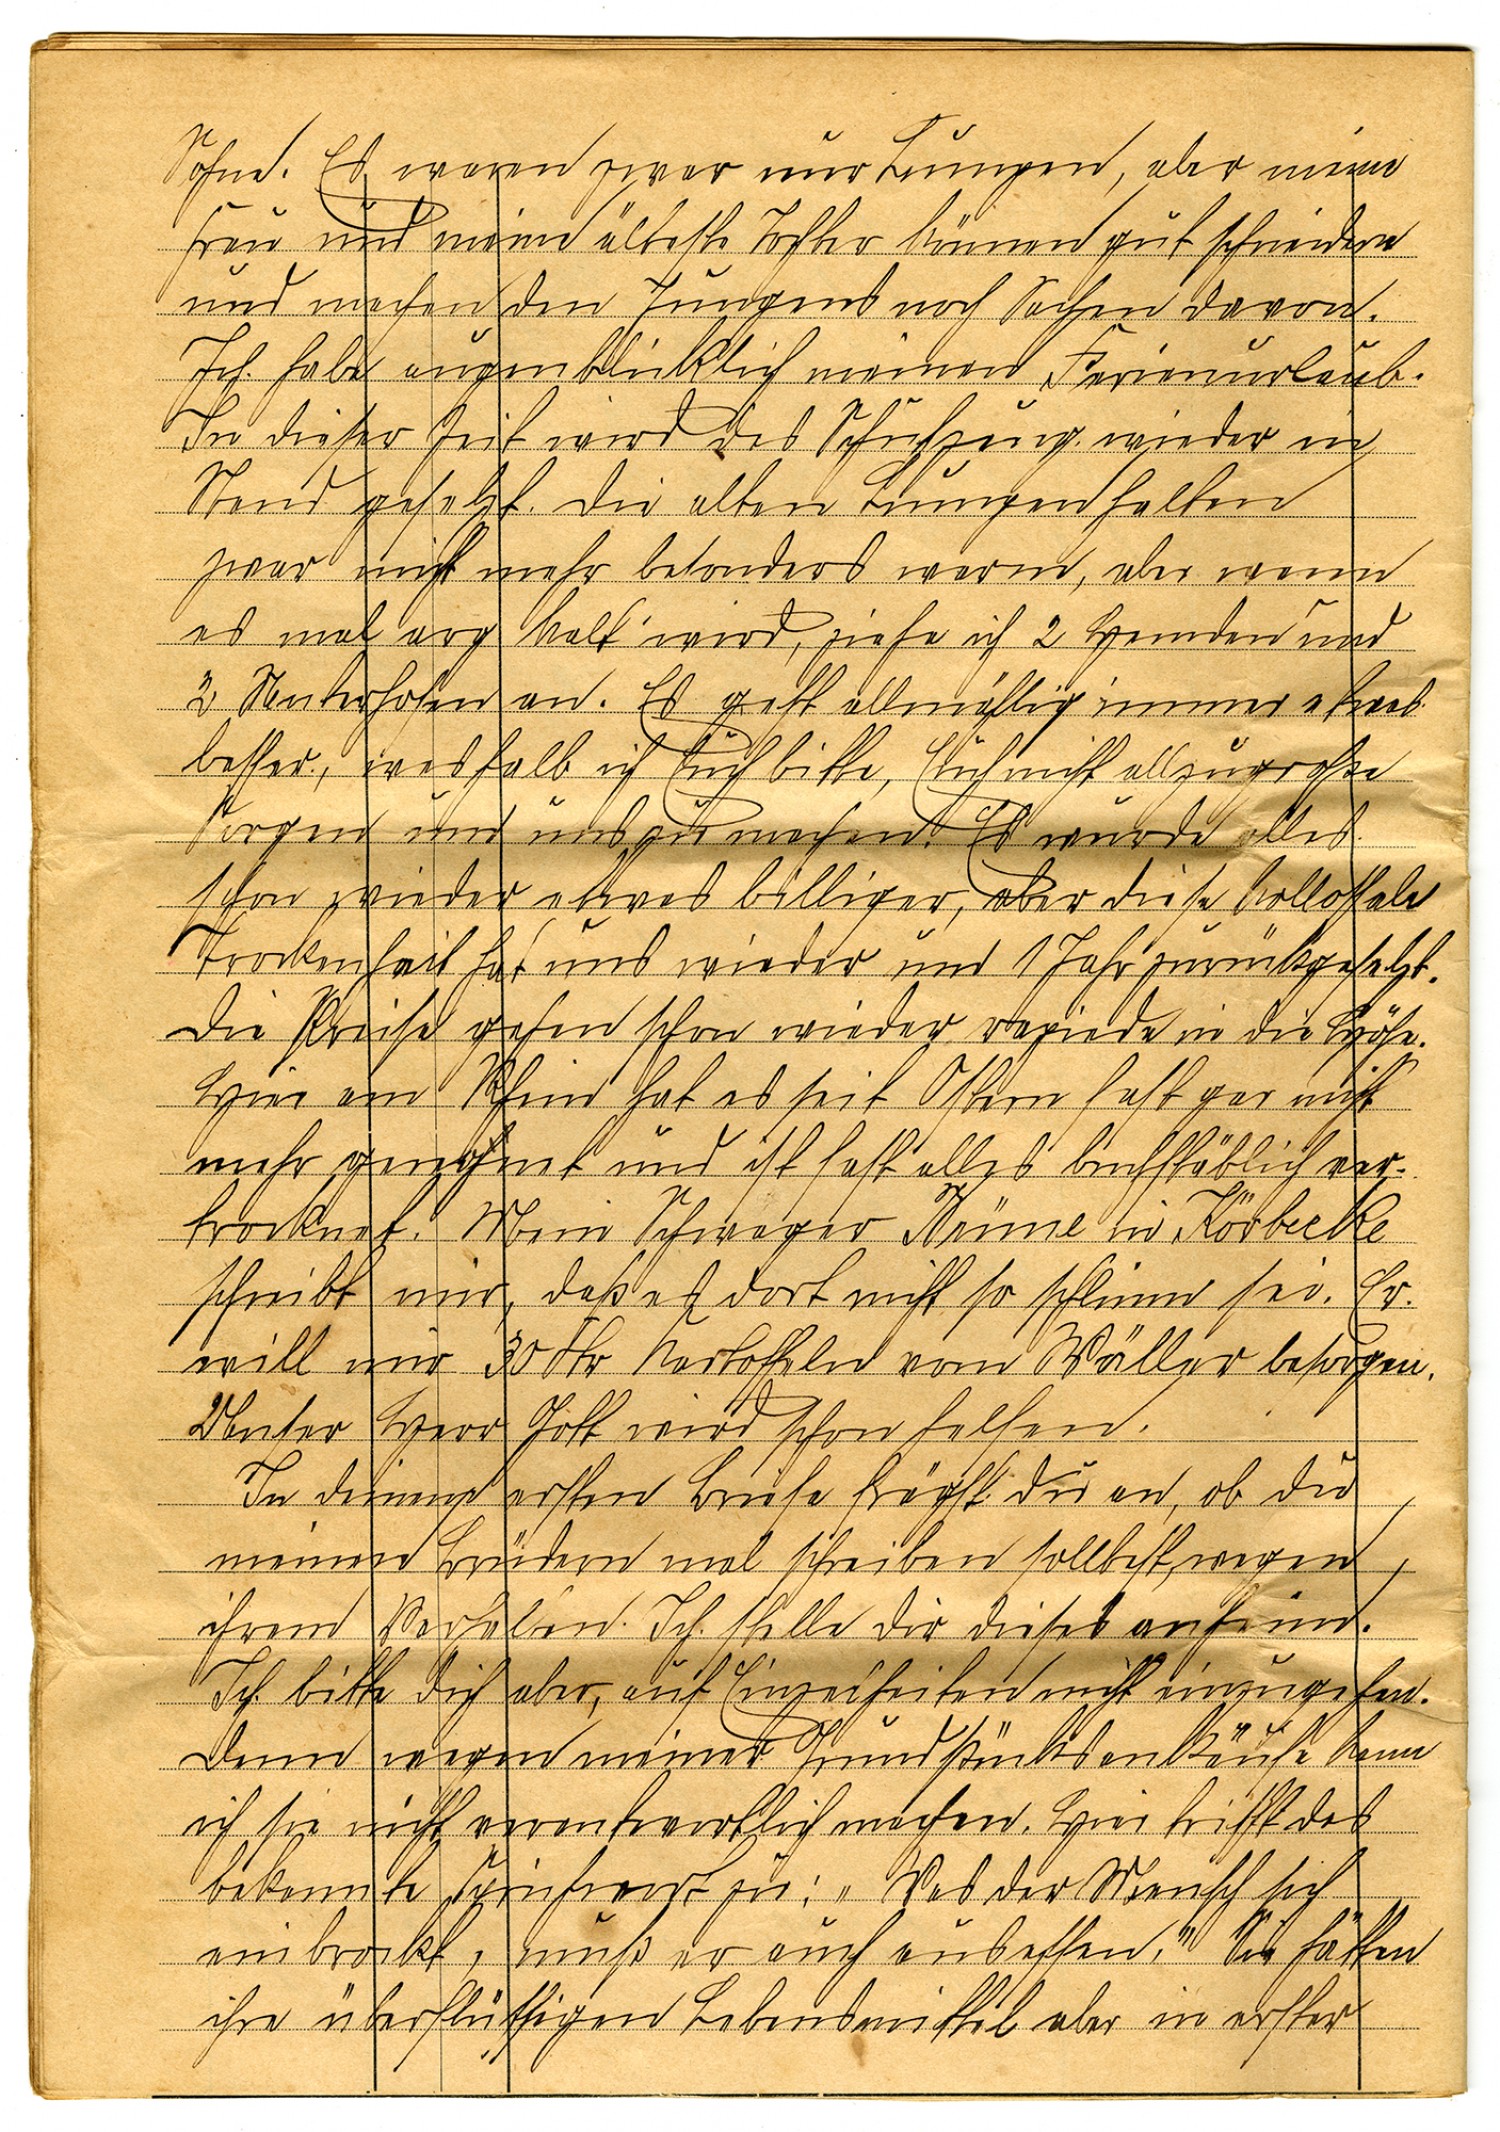 Sohne. Es waren zwar nur Lumpen, aber meine
Frau und meine älteste Tochter können gut schneidern
und machen den Jungens noch Sachen davon.
Ich habe augenblicklich meinen Ferienurlaub.
In dieser Zeit wird das Schuhzeug wieder in
Stand gesetzt. Die alten Lumpen halten
zwar nicht mehr besonders warm, aber wenn
es mal arg kalt wird, ziehe ich 2 Hemden und
2 Unterhosen an. Es geht allmählig immer etwas
besser, weshalb ich Euch bitte, Euch nicht allzugroße
Sorgen um uns zu machen. Es wurde alles
schon wieder etwas billiger, aber diese kollossale
Trockenheit hat uns wieder um 1 Jahr zurückgesetzt.
Die Preise gehen schon wieder rapiede in die Höhe.
Hier am Rhein hat es seit Ostern fast gar nicht
mehr geregnet und ist fast alles buchstäblich ver-
trocknet. Mein Schwager in Körbecke
schreibt mir, daß es dort nicht so schlimm sei. Er
will mir 30 Ztr Kartoffeln vom Wäller besorgen.
Unser Herr Gott wird schon helfen.
In deinem ersten Briefe frägst du an, ob du
meinen Brüdern mal schreiben solltest, wegen
ihrem Verhalten. Ich stelle dir dieses anheim.
Ich bitte dich aber, auf Einzelheiten nicht einzugehen.
Denn wegen meiner Grundstücksankäufe kann
ich sie nicht verantwortlich machen. Hier trifft das
bekannte Sprichwort zu: „Was der Mensch sich
einbrockt, muß er auch ausessen." Sie hätten
ihre überflüssigen Lebensmittel aber in erster